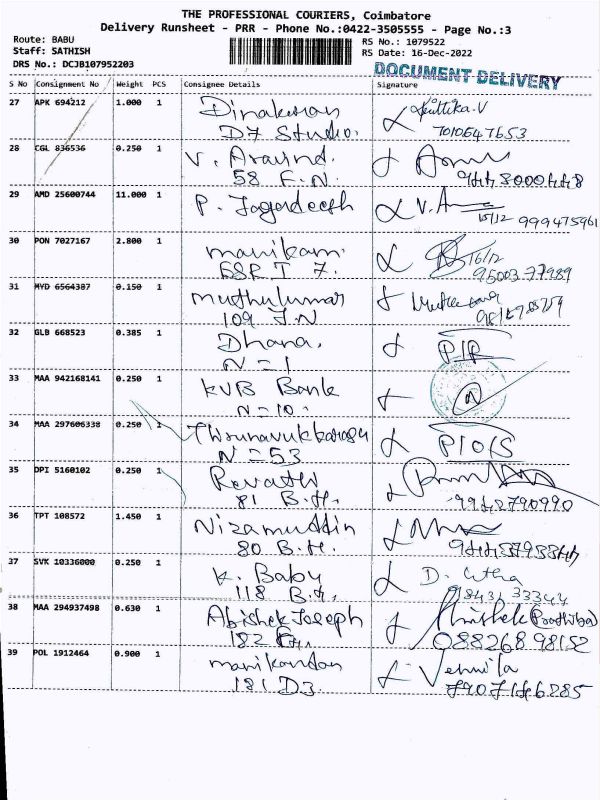 THE PROFESSIONAL COURIERS, Coimbatore
Delivery Runsheet - PRR - Phone No.:0422-3505555 - Page No.:3
Route: BABU
Staff: SATHISH
DRS No.: DCJB107952203
RS No.: 1079522
RS Date: 16-Dec-2022
DOCUMENT DELIVERY
S No Consignment No Weight PCS Consignee Details Signature
27 APK 694212 1.000 1 Dinakaran
D7 Studio. 7010647653
28 CGL 836536 0.250 1 V. Aravind.
58 F.N.
29 AMD 25600744 11.000 1 P. Jagadeesh
15/12
30 PON 7027167 2.800 1 manikam. 16/12
T 7. 95003 77989
31 MYD 6564387 0.150 1 muthukumar
109 J.N
32 GLB 668523 0.385 1 Dhana. P/R
N = 1
33 MAA 942168141 0.250 1 KVB Bank
N = 10.
34 MAA 297606338 0.250 1 Thirunavukkarasu P/O/S
N = 53
35 DPI 5160102 0.250 1 Revathi
81 B.H. 9942790990
36 TPT 108572 1.450 1 Nizamuddin
80 B.H.
37 SVK 10336000 0.250 1 K. Baby
118 B.H. 98431 33344
38 MAA 294937498 0.630 1 Abishek Joseph
182 088268 98152
39 POL 1912464 0.900 1 manikandan Vennila
181 D3